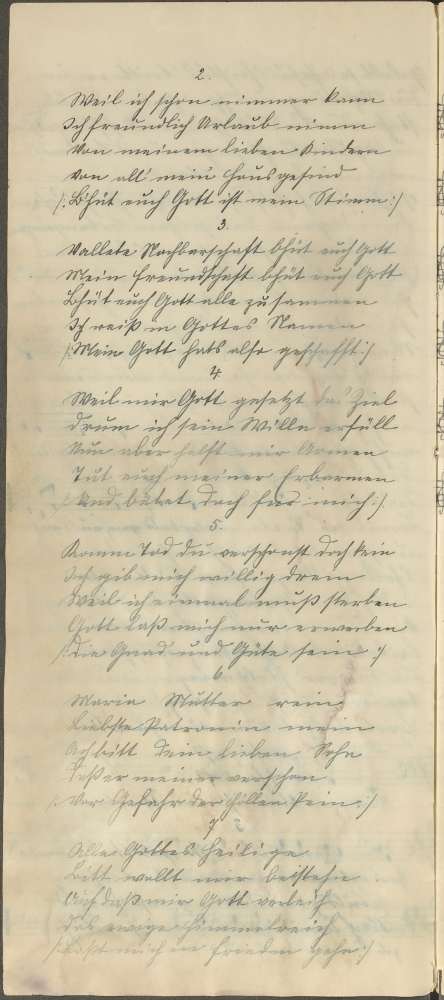 2.
Weil ich schon nimmer kann
Ich freundlich Urlaub nimm
Von meinem lieben Kindern
Von all' mein Hausgesind
/: Bhüt euch Gott ist mein Stimm :/
3.
Nachbarschaft bhüt euch Gott
Mein Freundschaft bhüt euch Gott
Bhüt euch Gott alle zusammen
Ich reiß in Gottes Namen
/: Mein Gott hats also geschafft :/
4.
Weil mir Gott gesetzt das Ziel
Drum ich sein Wille erfüll
Nun aber helft mir Armen
Tut euch meiner Erbarmen
/: Und bätet doch für mich :/
5.
Komm Tod du verschonst doch kein
Ich gib mich willig drein
Weil ich einmal muß sterben
Gott laß mich nur erwerben
/: Die Gnad und Güte sein :/
6.
Maria Mutter rein
Liebste Patronin mein
Ach bitt dein lieben Sohn
Daß er meiner verschon
/: Vor Gefahr der Höllen Pein :/
7.
Alle Gottes Heilige
Bitt wollt mir beistehn
Auf daß mir Gott verleih
Das ewige Himmelreich
/: Laßt mich in Frieden gehn :/